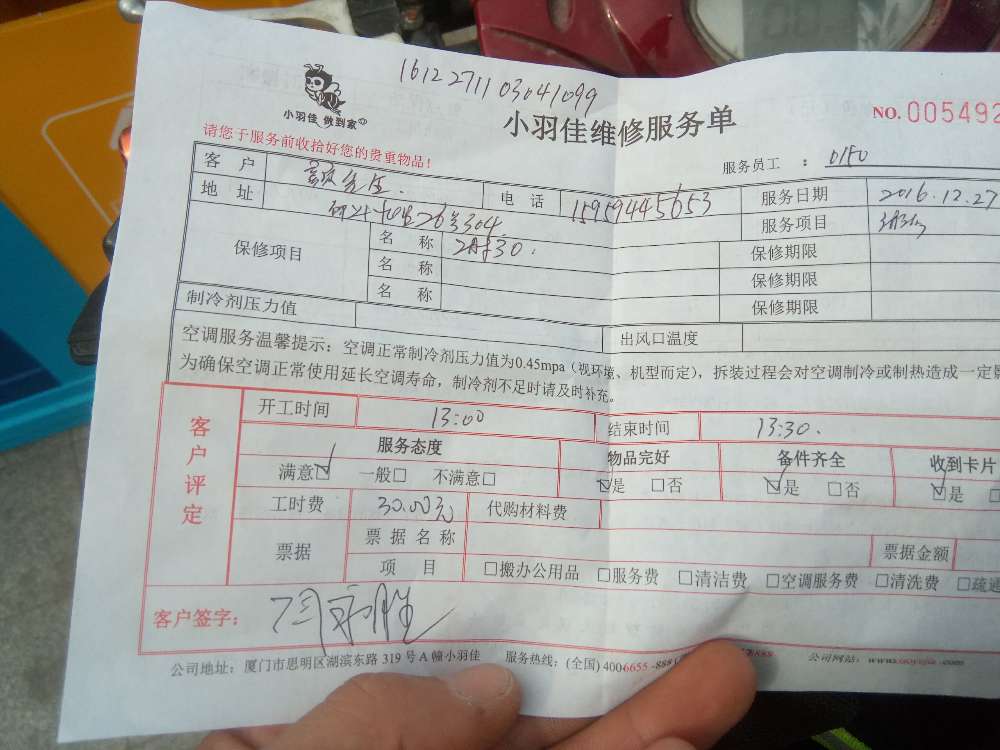 1612271103041099
小羽佳 做到家
小羽佳维修服务单
NO. 005492
请您于服务前收拾好您的贵重物品！
服务员工 ：
客 户 先生
电 话 15959445653
服务日期 2016.12.27
地 址 26号304
服务项目
保修项目
名 称
保修期限
名 称
保修期限
名 称
保修期限
制冷剂压力值
出风口温度
空调服务温馨提示：空调正常制冷剂压力值为0.45mpa（视环境、机型而定），拆装过程会对空调制冷或制热造成一定影
为确保空调正常使用延长空调寿命，制冷剂不足时请及时补充。
客户评定
开工时间 13:00
结束时间 13:30.
服务态度
物品完好
备件齐全
收到卡片
满意☑ 一般□ 不满意□
☑是 □否
☑是 □否
☑是
工时费 30.00元
代购材料费
票据
票 据 名 称
票据金额
项 目 □搬办公用品 □服务费 □清洁费 □空调服务费 □清洗费 □疏通
客户签字：
公司地址：厦门市思明区湖滨东路 319 号 A 幢小羽佳
服务热线：(全国) 4006655-888
公司网站：